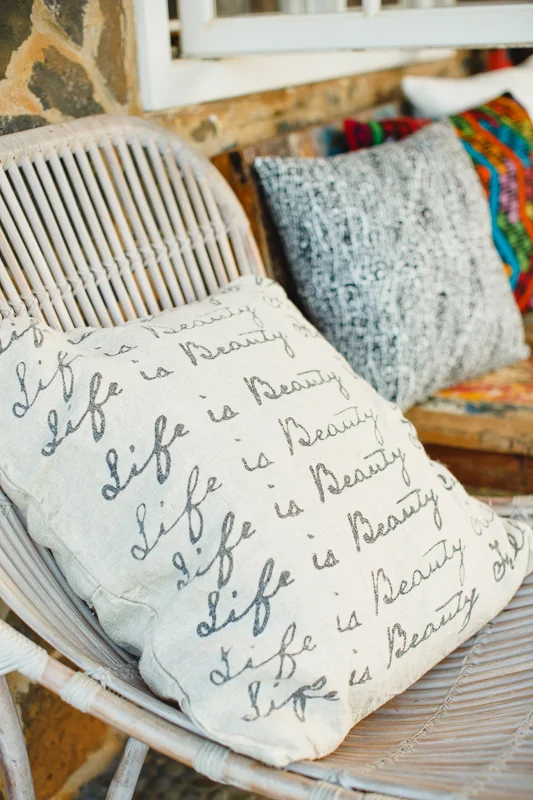 Life is Beauty
Life is Beauty
Life is Beauty
Life is Beauty
Life is Beauty
Life is Beauty
Life is Beauty
Life is Beauty